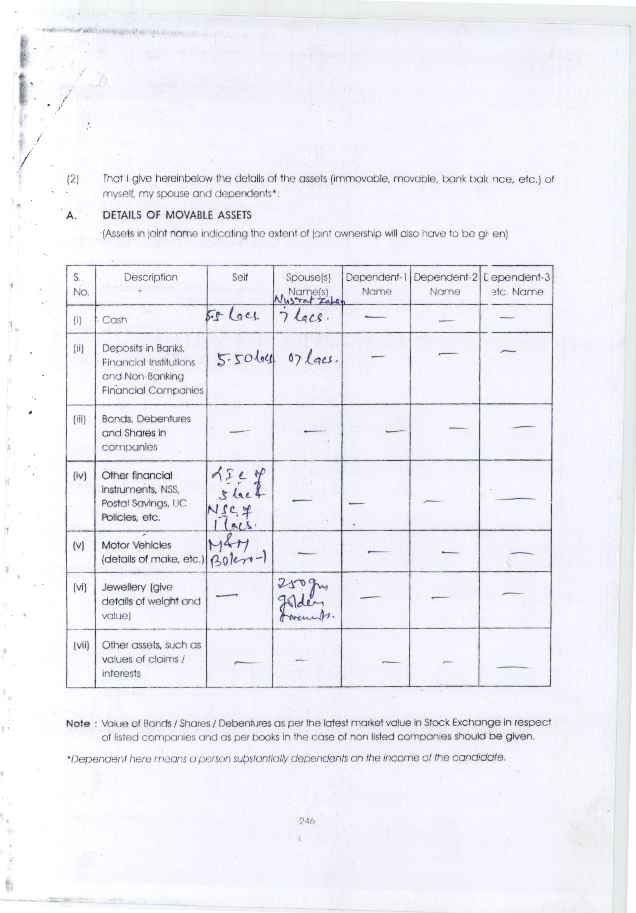 (2) That I give hereinbelow the details of the assets (immovable, movable, bank balance, etc.) of
myself, my spouse and dependents*:
A. DETAILS OF MOVABLE ASSETS
(Assets in joint name indicating the extent of joint ownership will also have to be given)
S. No. Description Self Spouse(s) Name(s) Nusrat Zaben Dependent-1 Name Dependent-2 Name Dependent-3 etc. Name
(i) Cash 55 lacs 7 lacs. — — —
(ii) Deposits in Banks, Financial Institutions and Non-Banking Financial Companies 5.50 lacs 07 lacs. — — —
(iii) Bonds, Debentures and Shares in companies — — — — —
(iv) Other financial instruments, NSS, Postal Savings, LIC Policies, etc. LIC of 5 lacs NSC of 1 lacs. — — — —
(v) Motor Vehicles (details of make, etc.) M&M Bolero-1 — — — —
(vi) Jewellery (give details of weight and value) — 250 gm golden — — —
(vii) Other assets, such as values of claims / interests — — — — —
Note : Value of Bonds / Shares / Debentures as per the latest market value in Stock Exchange in respect
of listed companies and as per books in the case of non listed companies should be given.
*Dependent here means a person substantially dependents on the income of the candidate.
246